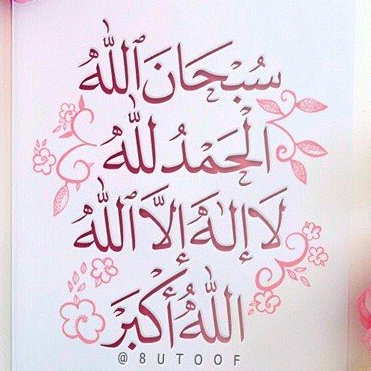 سُبْحَانَ ٱللَّهُ
الْحَمْدُ لِلَّهُ
لَا إِلٰهَ إِلَّا ٱللَّهُ
اللَّهُ أَكْبَرْ
@8UTOOF